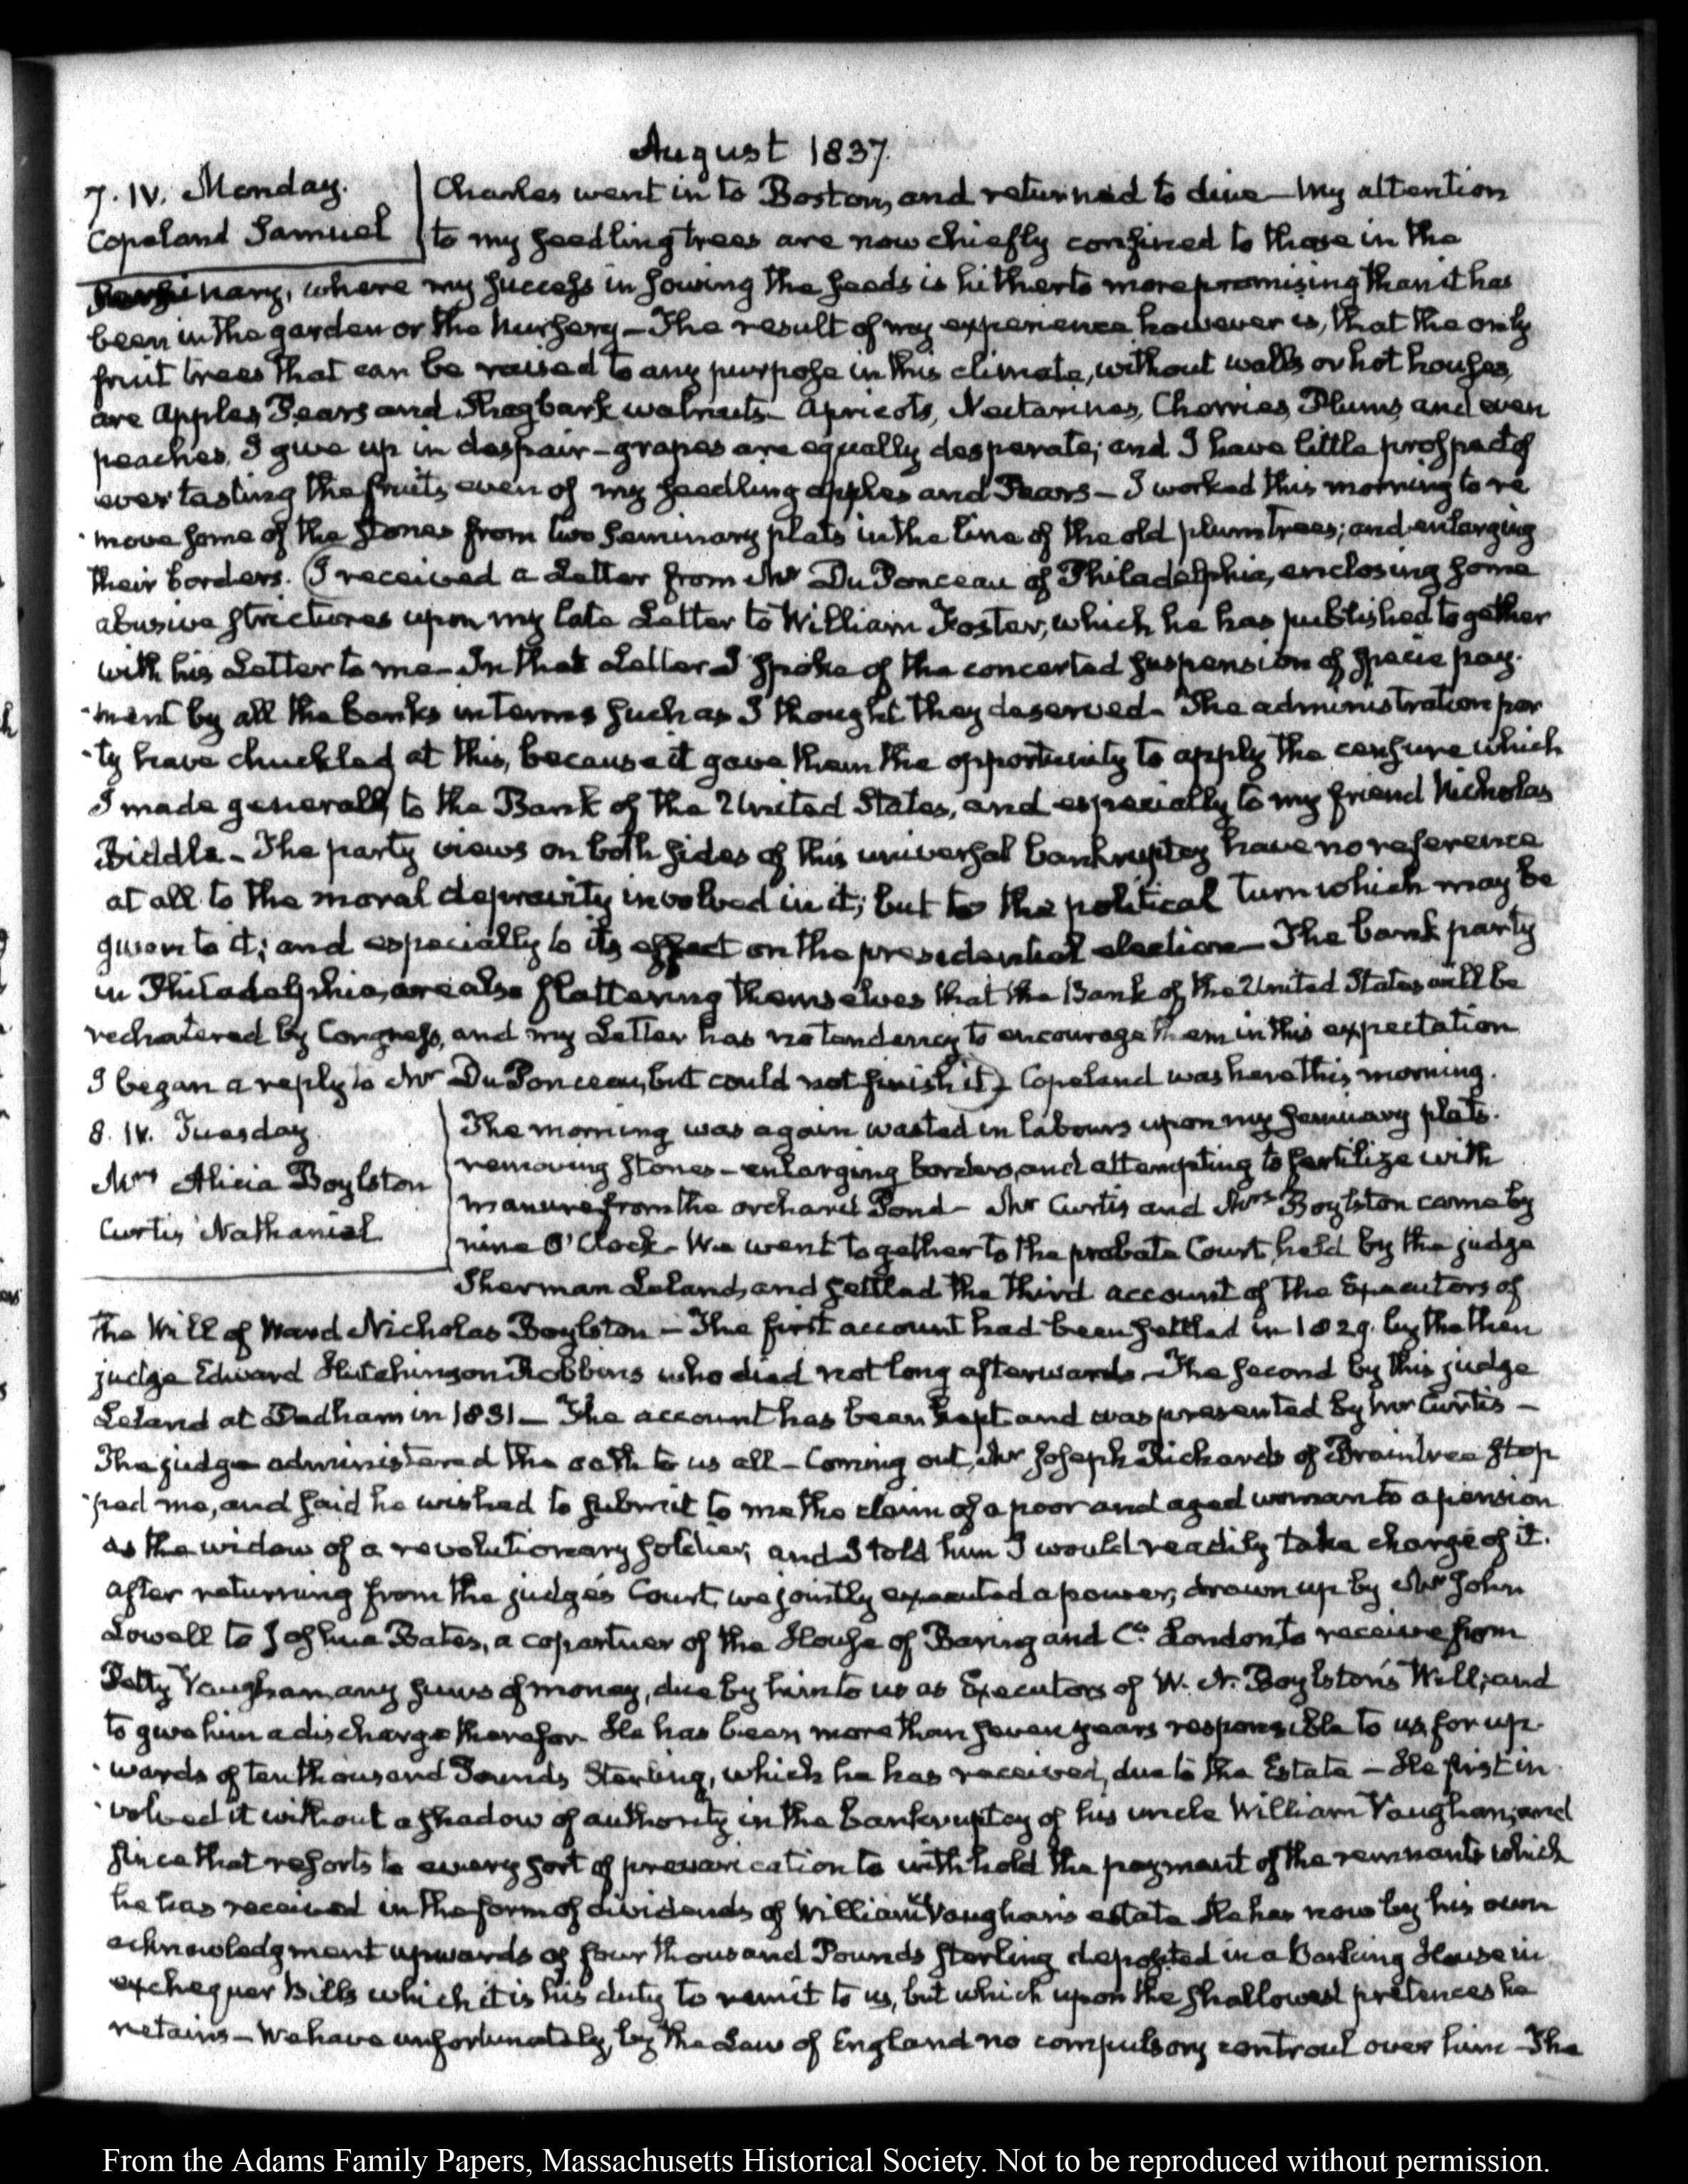 August 1837.
7. IV. Monday.
Copeland Samuel
Charles went in to Boston, and returned to dine — My attention
to my seedling trees are now chiefly confined to those in the
Seminary, where my success in sowing the seeds is hitherto more promising than it has
been in the garden or the Nursery — The result of my experience however is, that the only
fruit trees that can be raised to any purpose in this climate, without walls or hot houses,
are apples, Pears and Shagbark walnuts — Apricots, Nectarines, Cherries, Plums, and even
peaches, I give up in despair — grapes are equally desperate; and I have little prospect of
ever tasting the fruits even of my seedling apples and Pears — I worked this morning to re
move some of the stones from two seminary plats in the line of the old plum trees; and enlarging
their borders. (I received a Letter from Mr Du Ponceau of Philadelphia, enclosing some
abusive strictures upon my late Letter to William Foster, which he has published together
with his Letter to me — In that Letter I spoke of the concerted suspension of specie pay-
-ment by all the banks in terms such as I thought they deserved — The administration par
-ty have chuckled at this, because it gave them the opportunity to apply the censure which
I made generally, to the Bank of the United States, and especially to my friend Nicholas
Biddle — The party views on both sides of this universal bankruptcy have no reference
at all to the moral depravity involved in it; but to the political turn which may be
given to it; and especially to its effect on the presidential election — The bank party
in Philadelphia, are also flattering themselves that the Bank of the United States will be
rechatered by Congress, and my Letter has no tendency to encourage them in this expectation
I began a reply to Mr Du Ponceau, but could not finish it) Copeland was here this morning.
8. IV. Tuesday.
Mrs Alicia Boylston
Curtis Nathaniel
The morning was again wasted in labours upon my seminary plats.
removing stones — enlarging borders, and attempting to fertilize with
manure from the orchard Pond — Mr Curtis and Mrs Boylston came by
nine O'Clock — We went together to the probate Court, held by the judge
Sherman Leland, and settled the third account of the Executors of
the Will of Ward Nicholas Boylston — The first account had been settled in 1829. by the then
judge Edward Hutchinson Robbins who died not long afterwards — The second by this judge
Leland at Dedham in 1831 — The account has been kept and was presented by Mr Curtis —
The judge administered the oath to us all — Coming out, Mr Joseph Richards of Braintree stop
-ped me, and said he wished to submit to me the claim of a poor and aged woman to a pension
as the widow of a revolutionary soldier; and I told him I would readily take charge of it.
After returning from the judge's Court, we jointly executed a power, drawn up by Mr John
Lowell to Joshua Bates, a copartner of the House of Baring and Co. London, to receive from
Petty Vaughan, any sums of money, due by him to us as Executors of W. N. Boylston's Will; and
to give him a discharge therefor. He has been more than seven years responsible to us for up-
-wards of ten thousand Pounds Sterling, which he has received, due to the Estate — He first in-
-volved it without a shadow of authority in the bankruptcy of his uncle William Vaughan; and
since that resorts to every sort of prevarication to withhold the payment of the remnants which
he has received in the form of dividends of William Vaughan's estate. He has now by his own
acknowledgment upwards of four thousand Pounds sterling deposited in a Banking House in
exchequer Bills which it is his duty to remit to us, but which upon the shallowest pretences he
retains — We have unfortunately, by the Law of England no compulsory controul over him — The
From the Adams Family Papers, Massachusetts Historical Society. Not to be reproduced without permission.